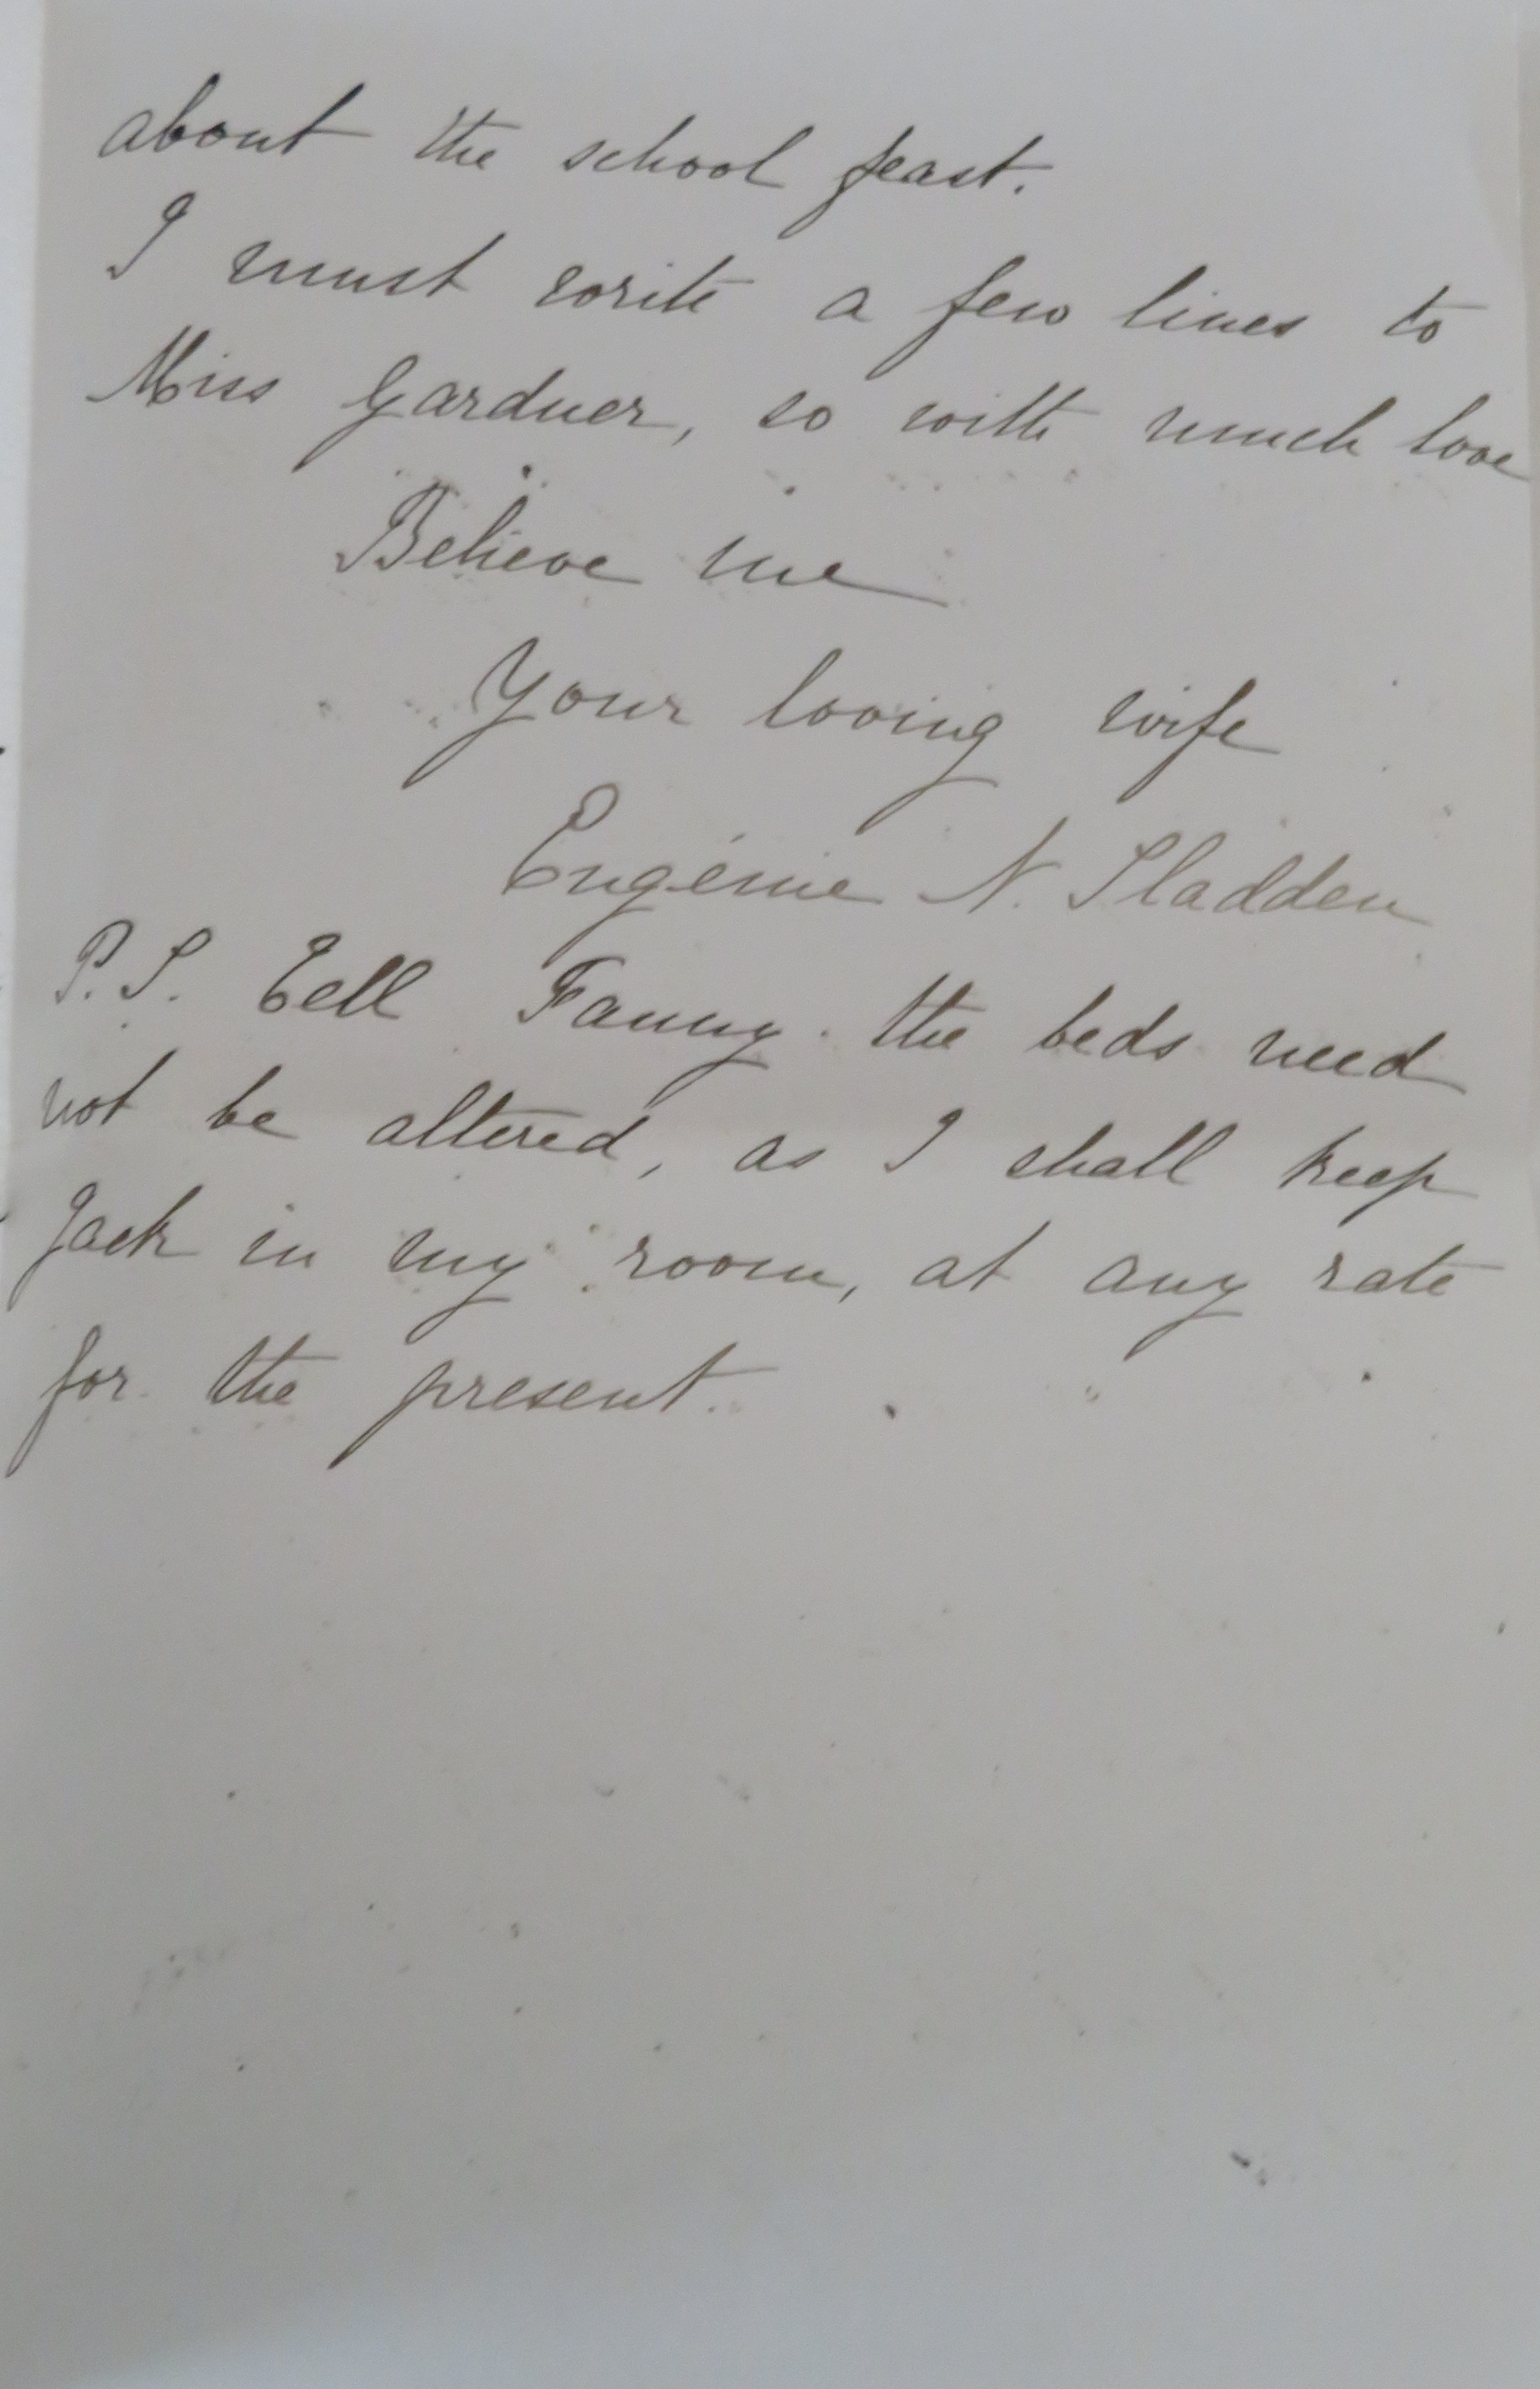 about the school feast.
I must write a few lines to
Miss Gardner, so with much love
Believe me
Your loving wife
Eugénie N. Sladden
P.S. Tell Fanny the beds need
not be altered, as I shall keep
Jack in my room, at any rate
for the present.